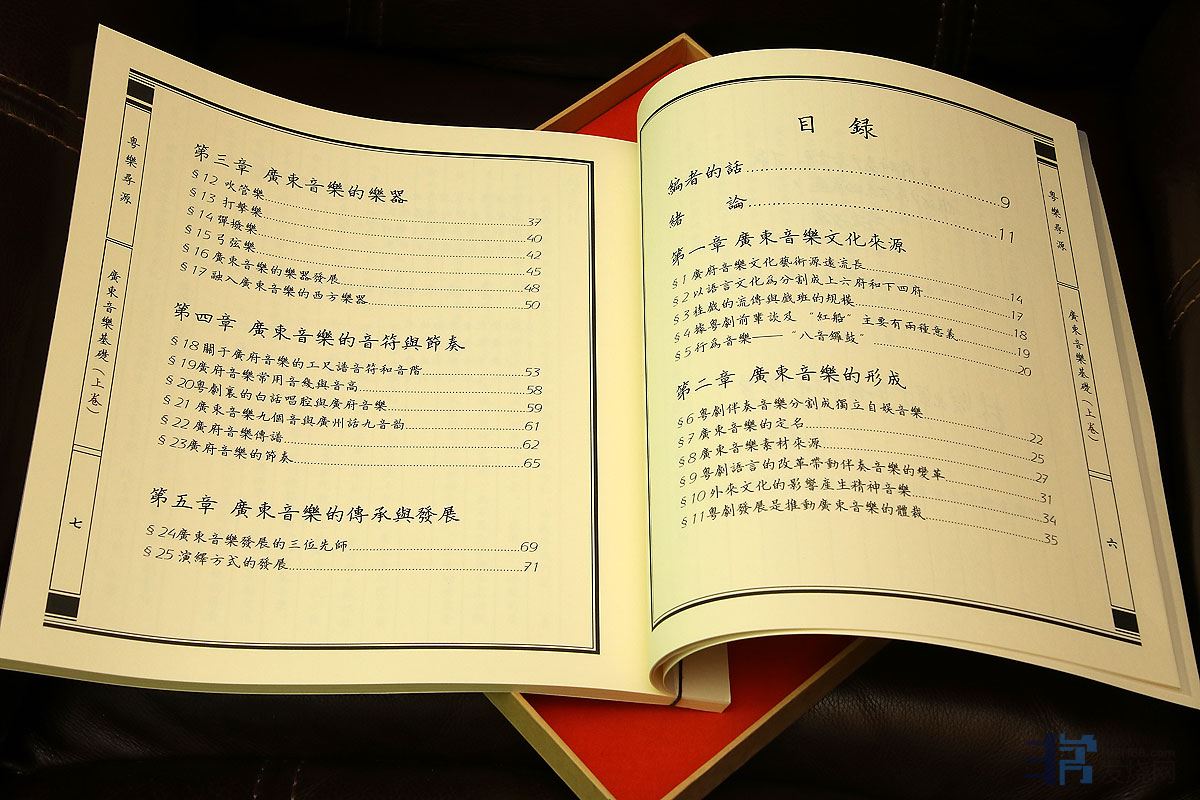 目 錄
編者的話……9
緒 論……11
第一章 廣東音樂文化來源
§1 廣府音樂文化藝術源遠流長……14
§2 以語言文化為分割成上六府和下四府……17
§3 桂戲的流傳與戲班的規模……18
§4 據粵劇前輩談及 “紅船” 主要有兩種意義……19
§5 行為音樂——“八音鑼鼓”……20
第二章 廣東音樂的形成
§6 粵劇伴奏音樂分割成獨立自娛音樂……22
§7 廣東音樂的定名……25
§8 廣東音樂素材來源……27
§9 粵劇語言的改革帶動伴奏音樂的變革……31
§10 外來文化的影響產生精神音樂……34
§11 粵劇發展是推動廣東音樂的體裁……35
粵樂尋源
廣東音樂基礎（上卷）
六
第三章 廣東音樂的樂器
§12 吹管樂……37
§13 打擊樂……40
§14 彈撥樂……42
§15 弓弦樂……45
§16 廣東音樂的樂器發展……48
§17 融入廣東音樂的西方樂器……50
第四章 廣東音樂的音符與節奏
§18 關于廣府音樂的工尺譜音符和音階……53
§19 廣府音樂常用音綫與音高……58
§20 粵劇裏的白話唱腔與廣府音樂……59
§21 廣東音樂九個音與廣州話九音韵……61
§22 廣府音樂傳譜……62
§23 廣府音樂的節奏……65
第五章 廣東音樂的傳承與發展
§24 廣東音樂發展的三位先師……69
§25 演繹方式的發展……71
粵樂尋源
廣東音樂基礎（上卷）
七